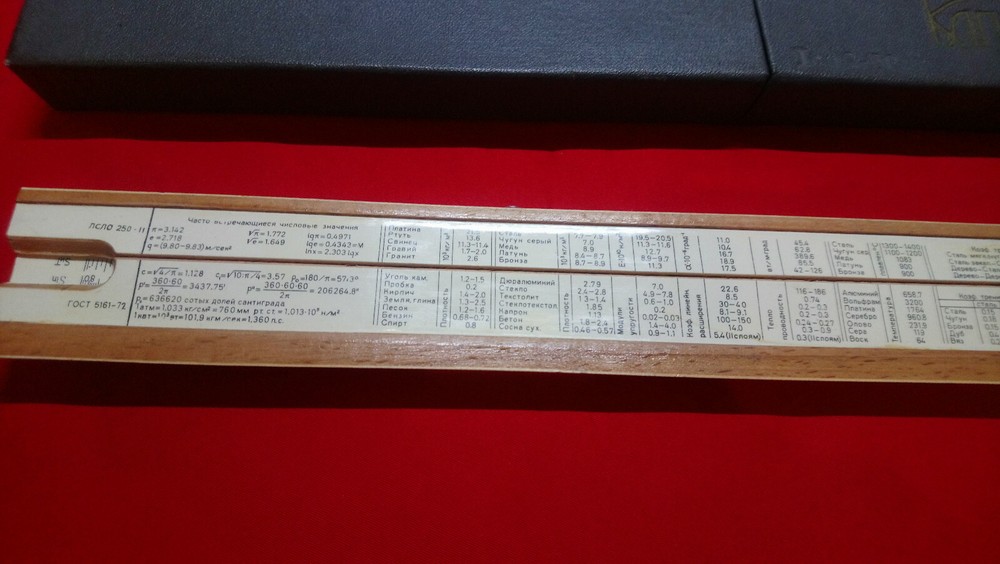 ПСЛО 250-
Часто встречающиеся числовые значения
π=3.142 √π=1.772 lgπ=0.4971
e=2.718 √e=1.649 lge=0.4343=M
g=(9.80-9.83)м/сек² lnx=2.303 lgx
Платина
Ртуть 13.6
Свинец 11.3-11.4
Гравий 1.7-2.0
Гранит 2.6
10³кг/м³
Сталь
Чугун серый 7.0
Медь 8.9
Латунь 8.4-8.7
Бронза 8.7-8.9
10³кг/м³
19.5-20.5
11.3-11.6
12.7
8.9-9.7
11.3
11.0
10.4
16.7
18.9
17.5
45.4
62.8
389.6
85.5
42-126
вт/м·град
Сталь (1300-1400)
1100-1200
Медь 1083
Латунь 900
Бронза 900
Sin
ГОСТ 5161-72
c=√4/π=1.128 c₁=√10·π/4=3.57 ρ₀=180/π=57.3°
ρ'=360·60/2π=3437.75' ρ"=360·60·60/2π=206264.8"
=636620 сотых долей сантиграда
1атм=1.033 кгс/см²=760 мм рт. ст.=1.013·10⁵ н/м²
1квт=10³вт=101.9 кгм/сек=1.360 л.с.
Уголь кам. 1.2-1.5
Пробка 0.2
Кирпич 1.4-2.0
Земля, глина 1.3-2.5
Песок 1.2-1.6
Бензин 0.68-0.72
Спирт 0.8
Плотность
Дюралюминий 2.79
Стекло 2.4-2.8
Текстолит 1.3-1.4
Стеклотекстол. 1.85
Капрон 1.13
Бетон 1.8-2.4
Сосна сух. 0.46-0.57
Плотность
Модули упругости
7.0
4.9-7.8
0.6-1.0
0.2
0.02-0.03
1.4-4.0
0.9-1.1
Коэф. линейн. расширения
22.6
8.5
30-40
8.1-9.1
100-150
14.0
5.4(IIслоям)
Тепло проводность
116-186
0.74
0.2-0.3
0.24-0.27
0.3-0.9
0.3(IIслоям)
Алюминий 658.7
Вольфрам 3200
Платина 1764
Серебро 960.8
Олово 231.9
Сера 119
Воск 64
Температура
Сталь
Чугун
Бронза
Дуб
Вяз